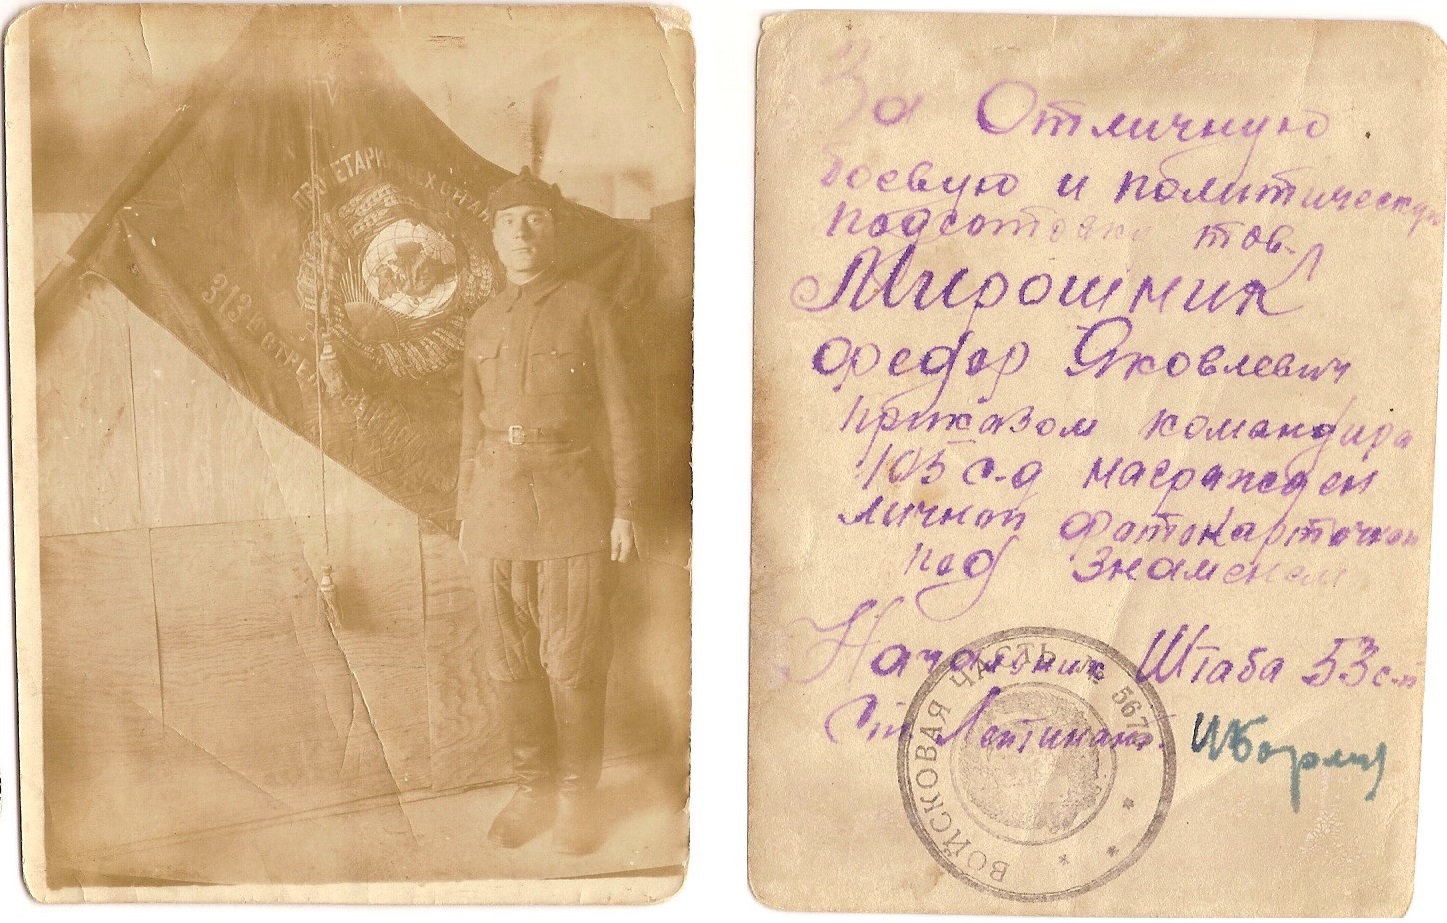 313 Й СТРЕЛ
За Отличную
боевую и политическую
подготовку тов.
Мирошник
Федор Яковлевич
приказом командира
105 с.д награжден
личной фотокарточкой
под Знаменем
Начальник Штаба 53 с.п
Ст Лейтинант
ВОЙСКОВАЯ ЧАСТЬ №